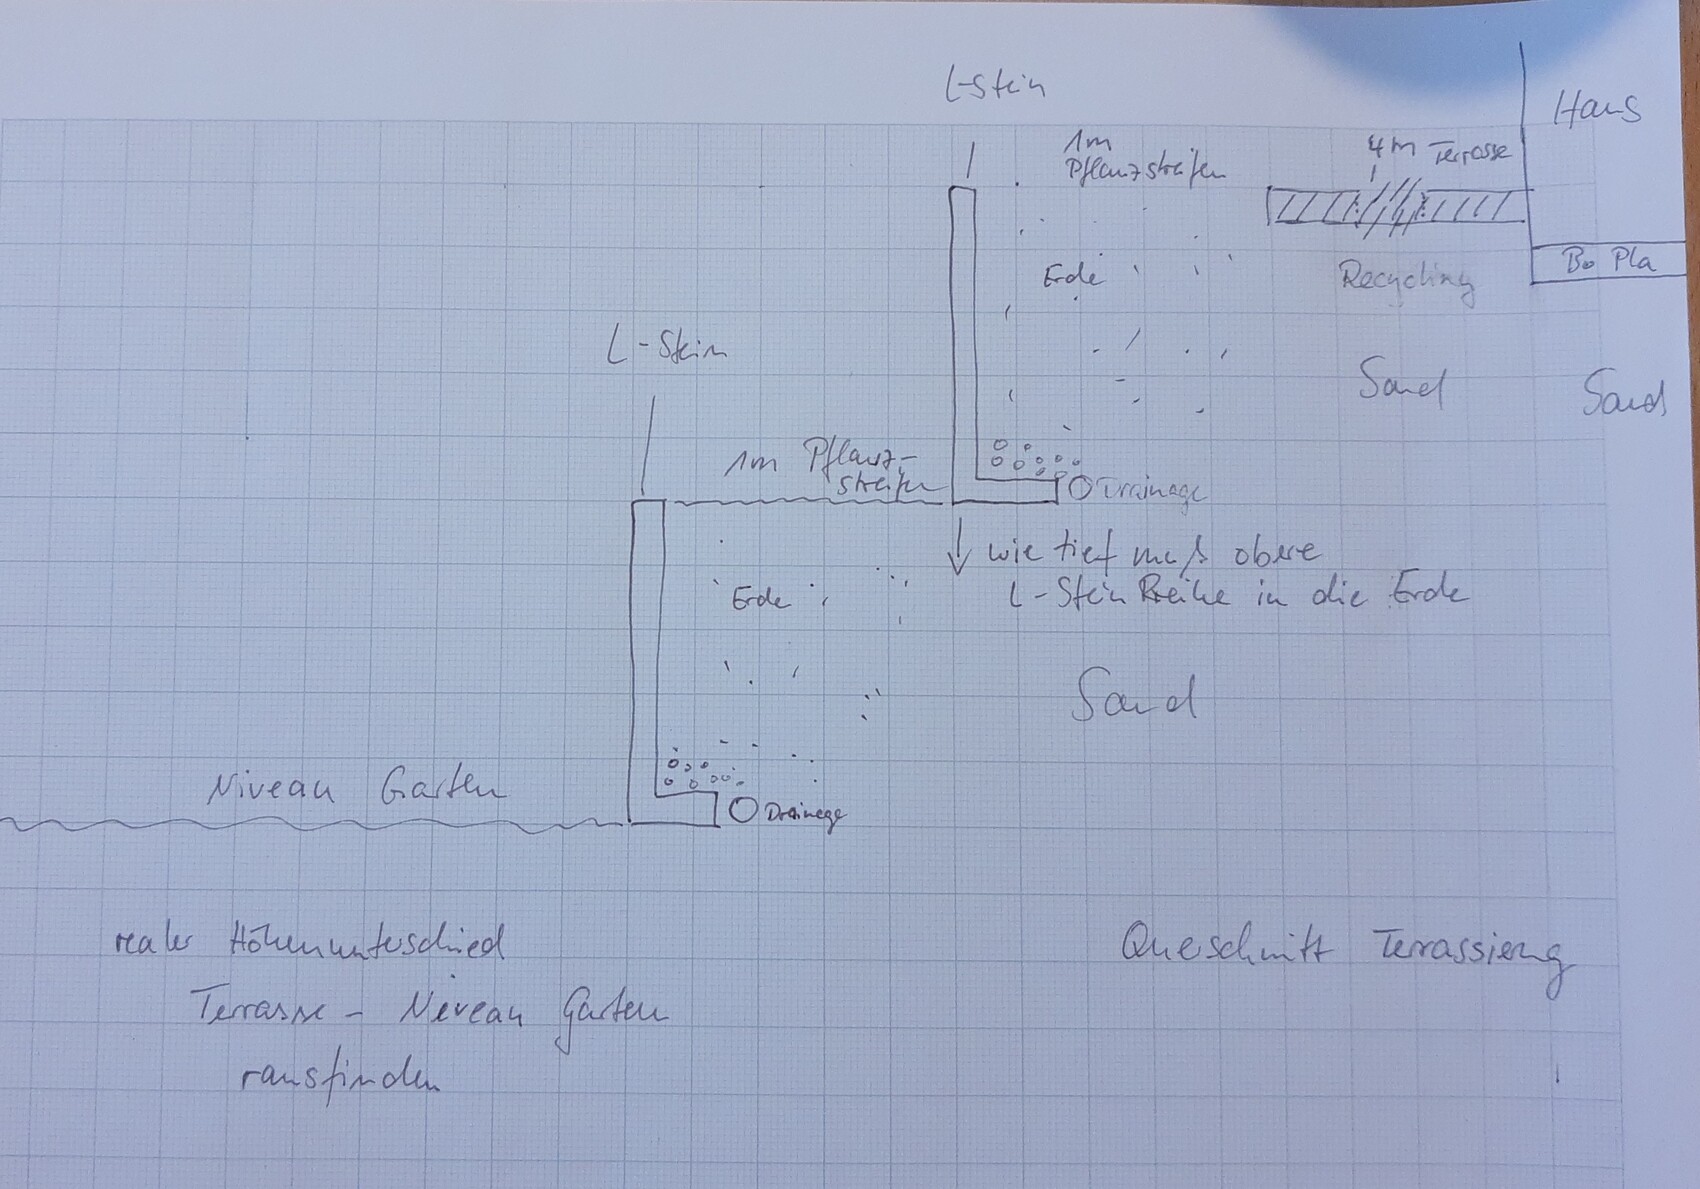 L-Stein
Haus
1m
Pflanzstreifen
4m Terrasse
Bo Pla
Erde
Recycling
L-Stein
Sand
Sand
1m Pflanz-
streifen
Drainage
wie tief muß obere
L-Stein Reihe in die Erde
Erde
Sand
Niveau Garten
Drainage
realer Höhenunterschied
Terrasse - Niveau Garten
rausfinden
Querschnitt Terrassierung